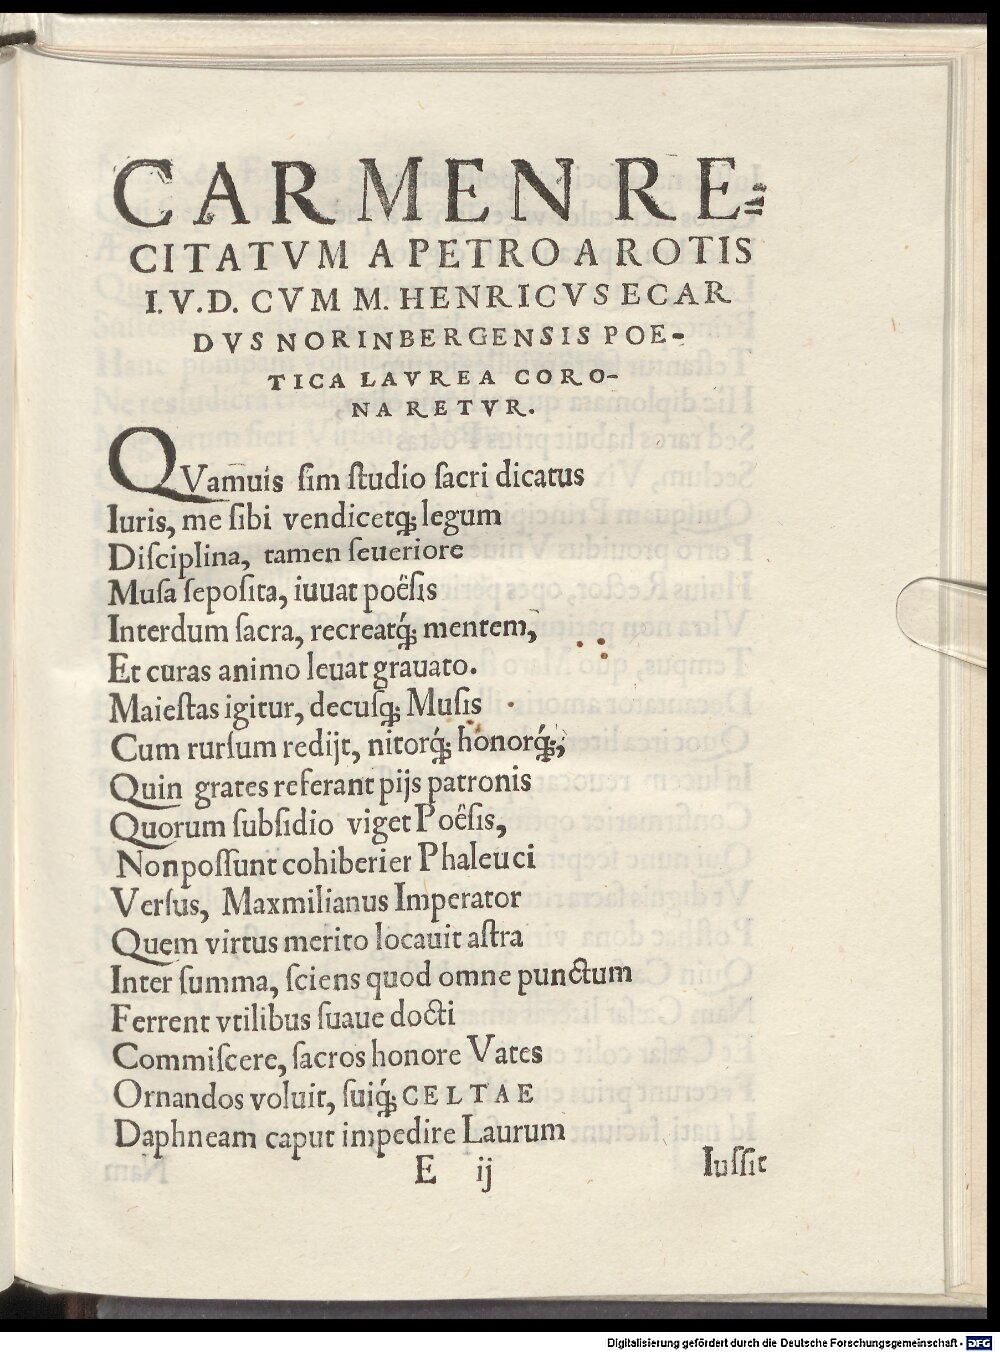 CARMEN RE=
CITATVM A PETRO A ROTIS
I. V. D. CVM M. HENRICVS ECAR
DVS NORINBERGENSIS POE-
TICA LAVREA CORO-
NARETVR.
QVam̄uis sim studio sacri dicatus
Iuris, me sibi vendicetq́; legum
Disciplina, tamen seueriore
Musa seposita, iuuat poêsis
Interdum sacra, recreatq́; mentem,
Et curas animo leuat grauato.
Maiestas igitur, decusq́; Musis
Cum rursum redijt, nitorq́; honorq́;,
Quin grates referant pijs patronis
Quorum subsidio viget Poêsis,
Non possunt cohiberier Phaleuci
Versus, Maxmilianus Imperator
Quem virtus merito locauit astra
Inter summa, sciens quod omne punctum
Ferrent vtilibus suaue docti
Commiscere, sacros honore Vates
Ornandos voluit, suiq́; CELTAE
Daphneam caput impedire Laurum
E ij
Iussit
Digitalisierung gefördert durch die Deutsche Forschungsgemeinschaft - DFG